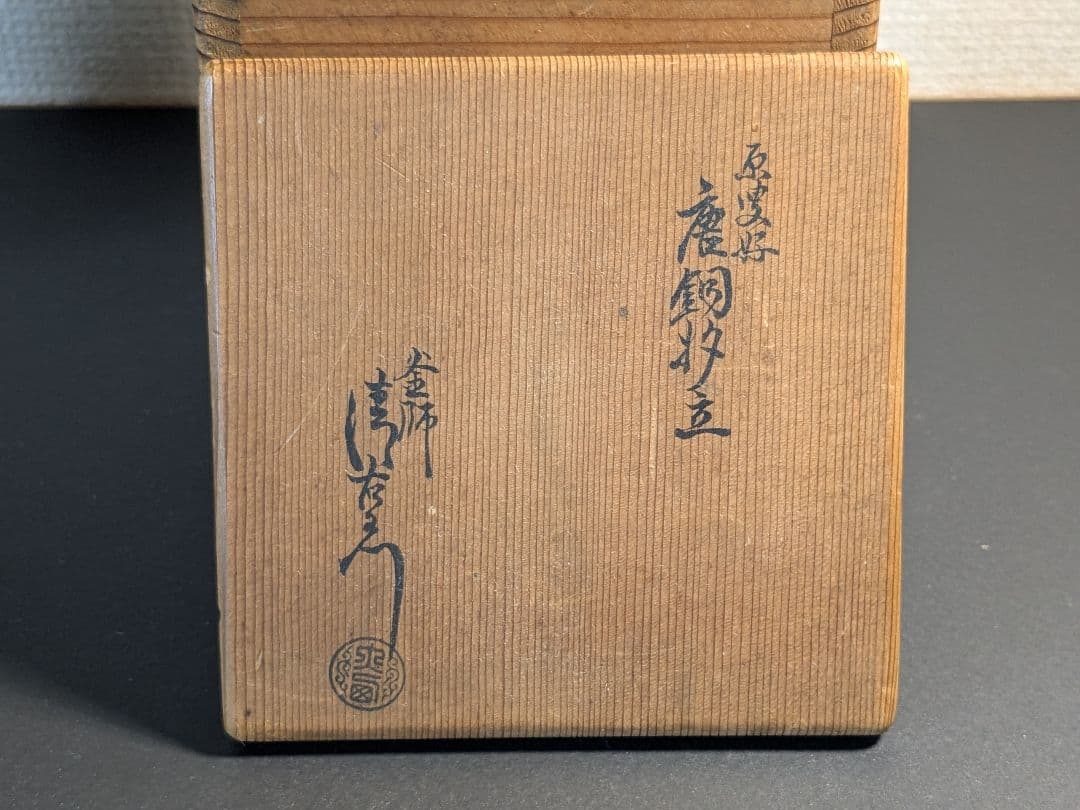 原叟好
唐銅杓立
釜師
清右衛門